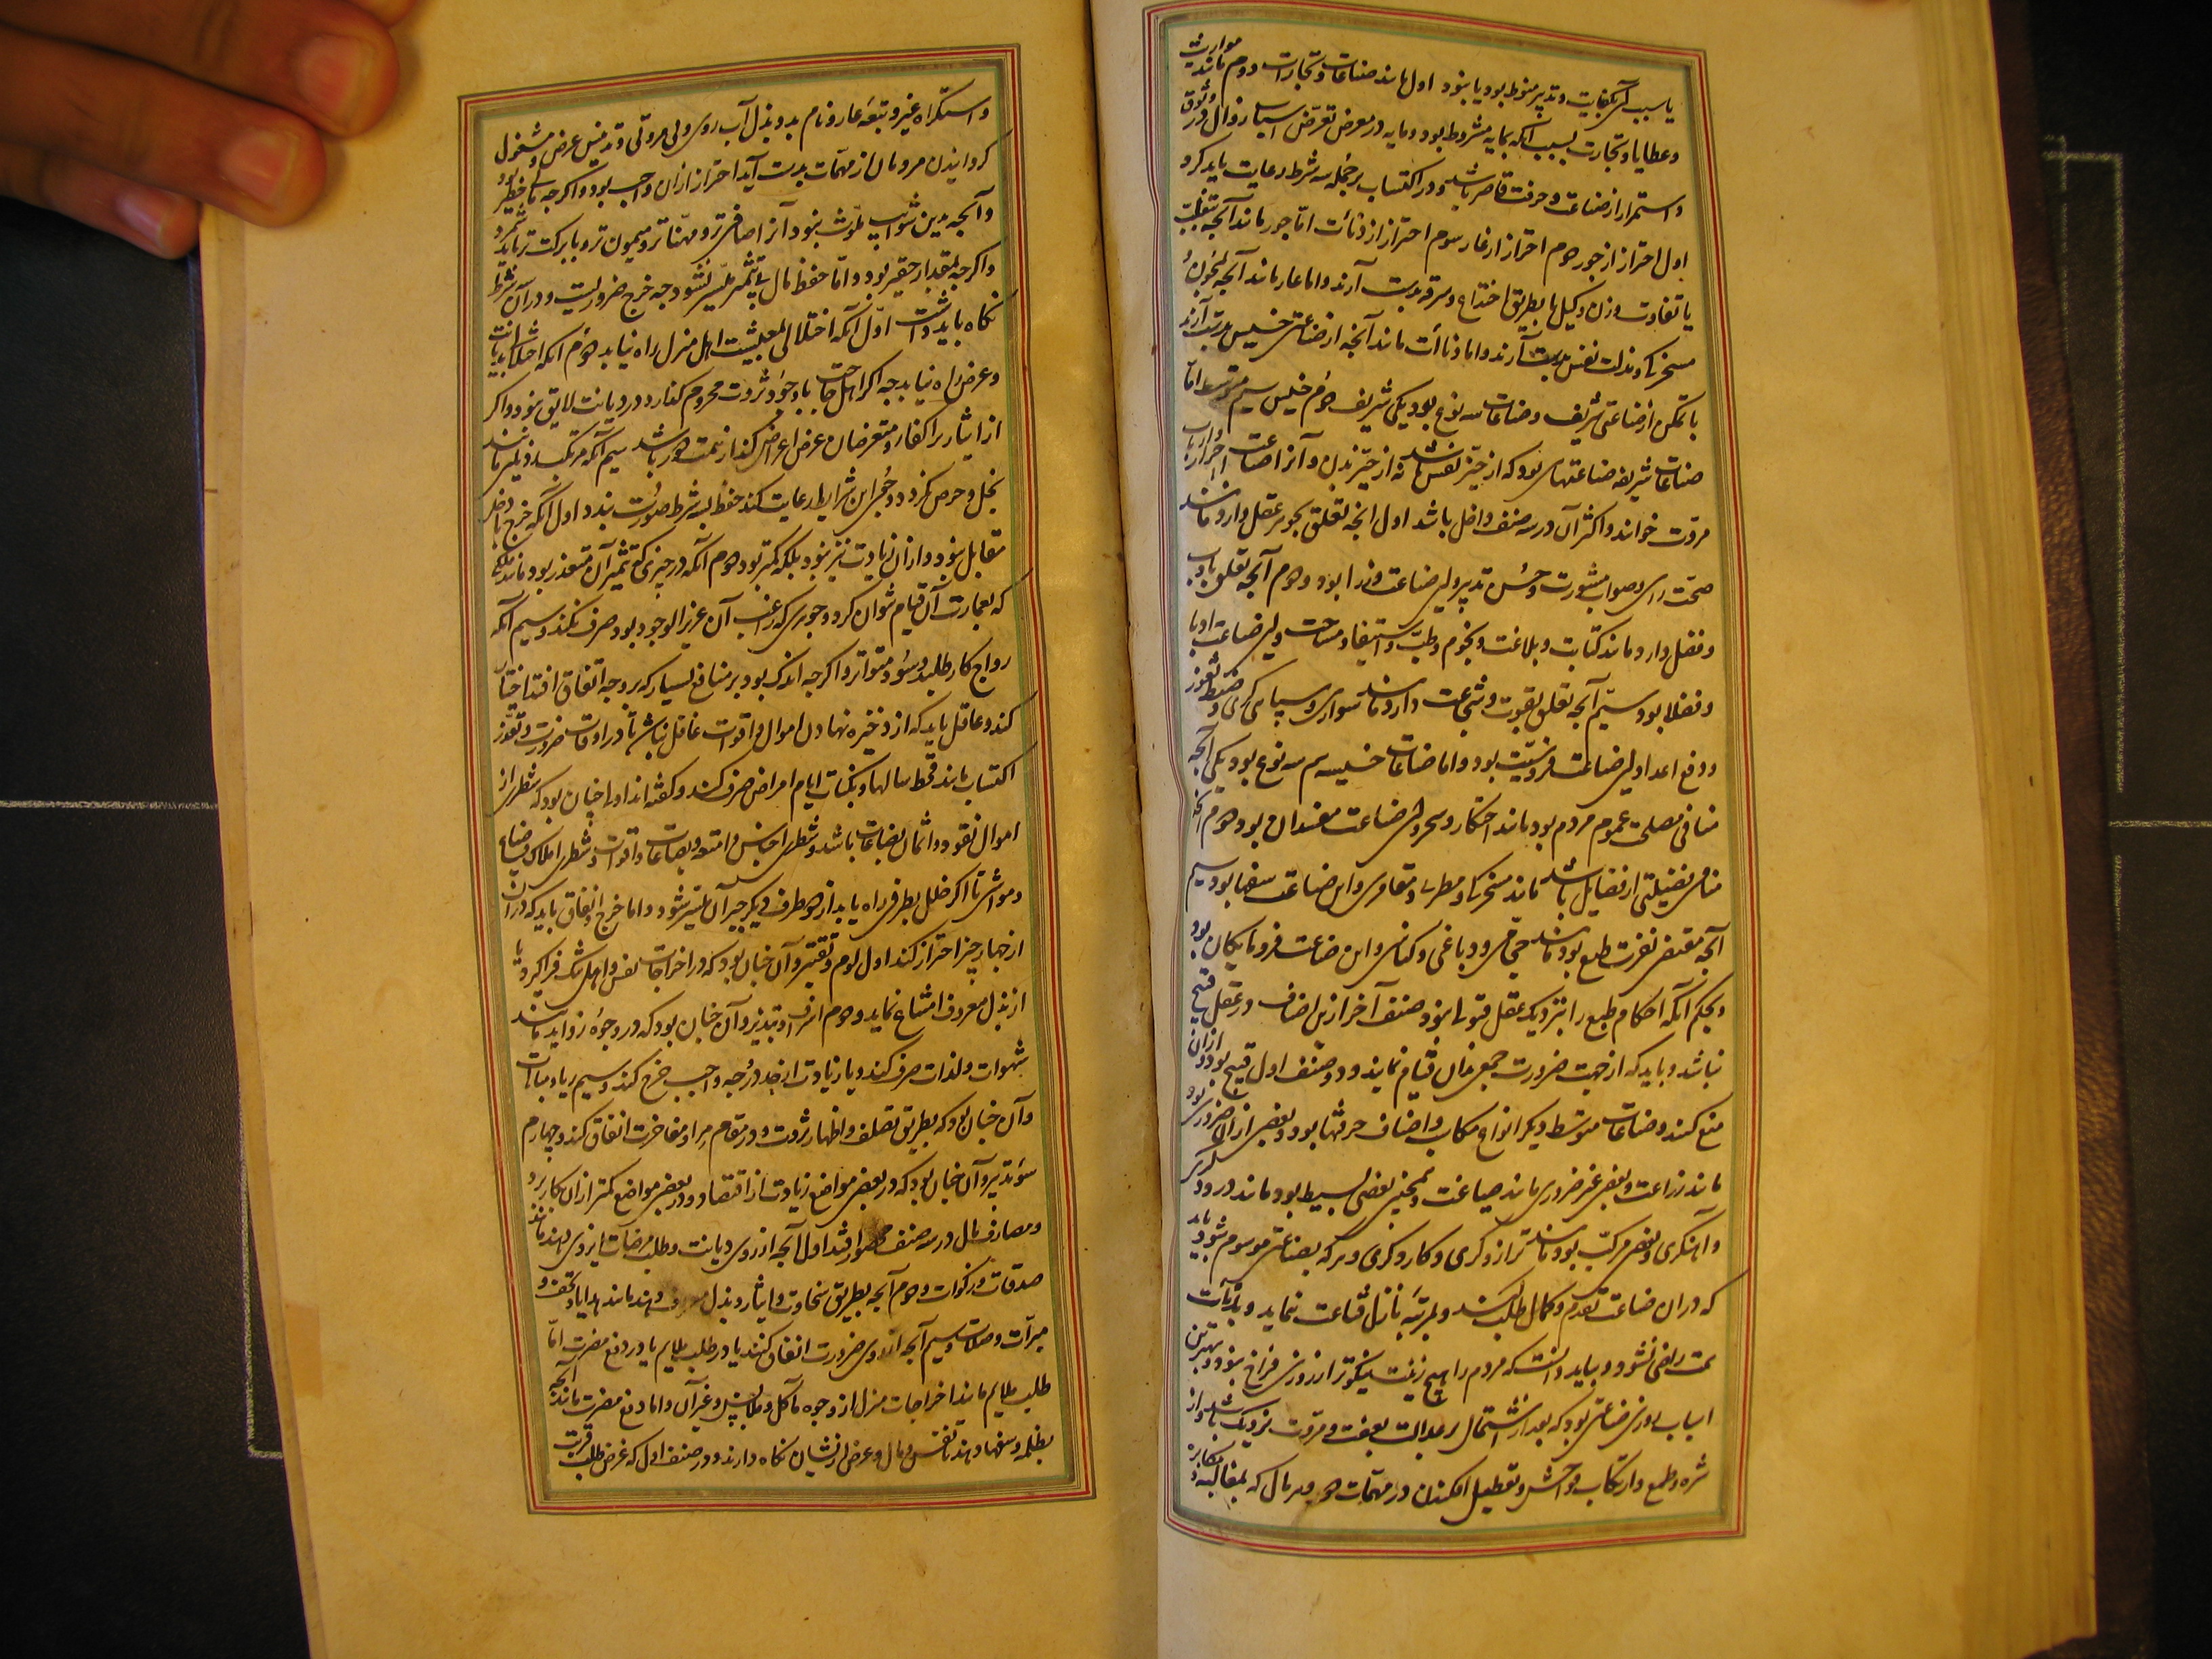 یا سبب آن بکفایت و تدبیر منوط بود یا نبود اول مانند صناعات و تجارات دوم مانند مواریث
و عطایا و تجارت بسبب آنکه بمایه مشروط بود و مایه در معرض تعرض اسباب زوال در وثوق
و استمرار از صناعت و حرفت قاصر باشد و در اکتساب بر جمله سه شرط رعایت باید کرد
اول احتراز از جور دوم احتراز از عار سوم احتراز از دناءت اما جور مانند آنچه بتغلب
یا تفاوت وزن و کیل یا بطریق اختداع و سرقه بدست آرند و اما عار مانند آنچه بمجون و
مسخرگی و مذلت نفس بدست آرند و اما دناءت مانند آنچه از صناعتی خسیس بدست آرند
با تمکن از صناعتی شریف و صناعات سه نوع بود یکی شریف دوم خسیس سیم متوسط اما
صناعات شریفه صناعتهای بود که از حیز نفس باشد نه از حیز بدن و آنرا صناعت احرار و ارباب
مروت خوانند و اکثر آن در سه صنف داخل باشد اول آنچه تعلق بجوهر عقل دارد مانند
صحت رای و صواب مشورت و حسن تدبیر و این صناعت وزرا بود و دوم آنچه تعلق بادب
و فضل دارد مانند کتابت و بلاغت و نجوم و طب و استیفا و مساحت و این صناعت ادبا
و فضلا بود و سیم آنچه تعلق بقوت و شجاعت دارد مانند سواری و سپاهی گری و ضبط ثغور
و دفع اعدا و این صناعت فروسیت بود و اما صناعات خسیسه هم سه نوع بود یکی آنچه
منافی مصلحت عموم مردم بود مانند احتکار و سحر و این صناعت مفسدان بود دوم آنچه
منافی فضیلتی از فضایل باشد مانند مسخرگی و مطربی و مقامری و این صناعت سفها بود و سیم
آنچه مقتضی نفرت طبع بود مانند حجامی و دباغی و کناسی و این صناعت فرومایگان بود
و بحکم آنکه احکام طبع را بنزدیک عقل قبولی نبود صنف آخر ازین اصناف در عقل قبیح
نباشد و باید که از جهت ضرورت جمعی بدان قیام نمایند و دو صنف اول قبیح بود و ازان
منع کنند و صناعات متوسط دیگر انواع مکاسب و اصناف حرفتها بود و بعضی ازان ضروری بود
مانند زراعت و بعضی غیر ضروری مانند صیاغت و همچنین بعضی بسیط بود مانند درودگری
و آهنگری و بعضی مرکب بود مانند ترازوگری و کاردگری و هر که بصناعتی موسوم شود باید
که دران صناعت تقدم و کمال طلب کند و بمرتبه نازل قناعت ننماید و بدناءت
همت راضی نشود و بباید دانست که مردم را هیچ زینت نیکوتر از روزی فراخ نبود و بهترین
اسباب روزی صناعتی بود که بعد از اشتمال بر عدالت بعفت و مروت نزدیک باشد و از
شره و طمع و ارتکاب فواحش و تعطیل افکندن در مهمات دور و هر مال که بمغالبه و مکابره
و استکراه غیر و تبعه عار و نام بد و بذل آب روی و بی مروتی و تدنیس عرض و مشغول
گردانیدن مردمان از مهمات بدست آید احتراز ازان واجب بود و اگرچه مالی خطیر بود
و آنچه بدین شوایب ملوث نبود آنرا صافی تر و مهنا تر و میمون تر و با برکت تر باید شمرد
و اگرچه بمقدار حقیر بود و اما حفظ مال بی تثمیر میسر نشود چه خرج ضروریست و دران سه شرط
نگاه باید داشت اول آنکه اختلالی بمعیشت اهل منزل راه نیابد دوم آنکه اختلالی بدیانت
و عرض راه نیابد چه اگر اهل حاجت با وجود ثروت محروم گذارد در دیانت لایق نبود و اگر
از ایثار بر اکفا و متعرضان عرض اعراض کند از همت دور باشد سیم آنکه مرتکب رذیلتی مانند
بخل و حرص نگردد و چون این شرایط رعایت کند حفظ بسه شرط صورت بندد اول آنکه خرج با دخل
مقابل نبود و ازان زیادت نیز نبود بلکه کمتر بود دوم آنکه در چیزی که تثمیر آن متعذر بود مانند ملکی
که بعمارت آن قیام نتوان کرد و جوهری که راغب آن عزیز الوجود بود صرف نکند و سیم آنکه
رواج کار طلبد و سود متواتر و اگرچه اندک بود بر منافع بسیار که بر وجه اتفاق افتد اختیار
کند و عاقل باید که از ذخیره نهادن اموال و اقوات غافل نباشد تا در اوقات ضرورت و تعذر
اکتساب مانند قحط سالها و نکبات و ایام امراض صرف کند و گفته اند اولی چنان بود که شطری از
اموال نقود و اثمان بضاعات باشد و شطری اجناس و امتعه و بضاعات و اقوات و شطری املاک و ضیاع
و مواشی تا اگر خلل بطرفی راه یابد از دو طرف دیگر جبر آن میسر شود و اما خرج و انفاق باید که دران
از چهار چیز احتراز کند اول لوم و تقتیر و آن چنان بود که در اخراجات نفس و اهل تنگ فرا گیرد یا
از بذل معروف امتناع نماید و دوم اسراف و تبذیر و آن چنان بود که در وجوه زواید مانند
شهوات و لذات صرف کند و یا زیادت از حد در وجه واجب خرج کند و سیم ریا و مباهات
و آن چنان بود که بطریق تصلف و اظهار ثروت و در مقام مرا و مفاخرت انفاق کند و چهارم
سوء تدبیر و آن چنان بود که در بعضی مواضع زیادت از اقتصاد و در بعضی مواضع کمتر ازان بکار برد
و مصارف مال در سه صنف محصور افتد اول آنچه از روی دیانت و طلب مرضات ایزدی دهند مانند
صدقات و زکوات و دوم آنچه بطریق سخاوت و ایثار و بذل معروف دهند مانند هدایا و تحف و
مبرات و صلات و سیم آنچه از روی ضرورت انفاق کنند یا در طلب ملایم یا در دفع مضرت اما
طلب ملایم مانند اخراجات منزل از وجوه مآکل و ملابس و غیر آن و اما دفع مضرت مانند آنچه
بظلمه و سفها دهند تا نفس و مال و عرض ازیشان نگاه دارند و در صنف اول که غرض طلب قربت